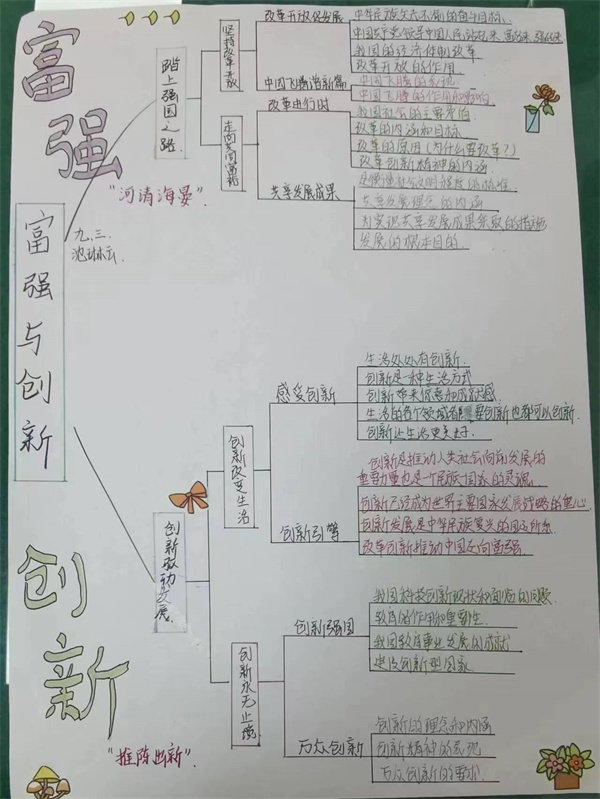 富强
"河清海晏".
九、三.
池琳云.
富强与创新
踏上强国之路
坚持改革开放
改革开放促发展
中华民族矢志不渝的奋斗目标.
中国共产党领导中国人民站起来、富起来、强起来
我国的经济体制改革
改革开放的作用
中国飞腾谱新篇
中国飞腾的表现
中国飞腾的作用和影响
走向共同富裕
改革进行时
我国社会的主要矛盾
改革的内涵和目标
改革的原因(为什么要改革?)
改革创新精神的内涵
共享发展成果
共享发展理念的内涵
为实现共享发展成果采取的措施
发展的根本目的.
创新
"推陈出新"
创新驱动发展.
创新改变生活
感受创新
生活处处有创新.
创新是一种生活方式
创新带来惊喜和成就感.
生活的各个领域都需要创新也都可以创新.
创新让生活更美好.
创新引擎
创新是推动人类社会向前发展的
重要力量也是个民族国家的灵魂.
创新已经成为世界主要国家发展战略的重心.
创新发展是中华民族复兴的国运所系
改革创新推动中国走向富强.
创新永无止境
创新强国
我国科技创新现状和面临的问题
教育的作用和重要性
我国教育事业发展的成就
建设创新型国家
万众创新
创新的理念和内涵
创新精神的表现
万众创新的要求.